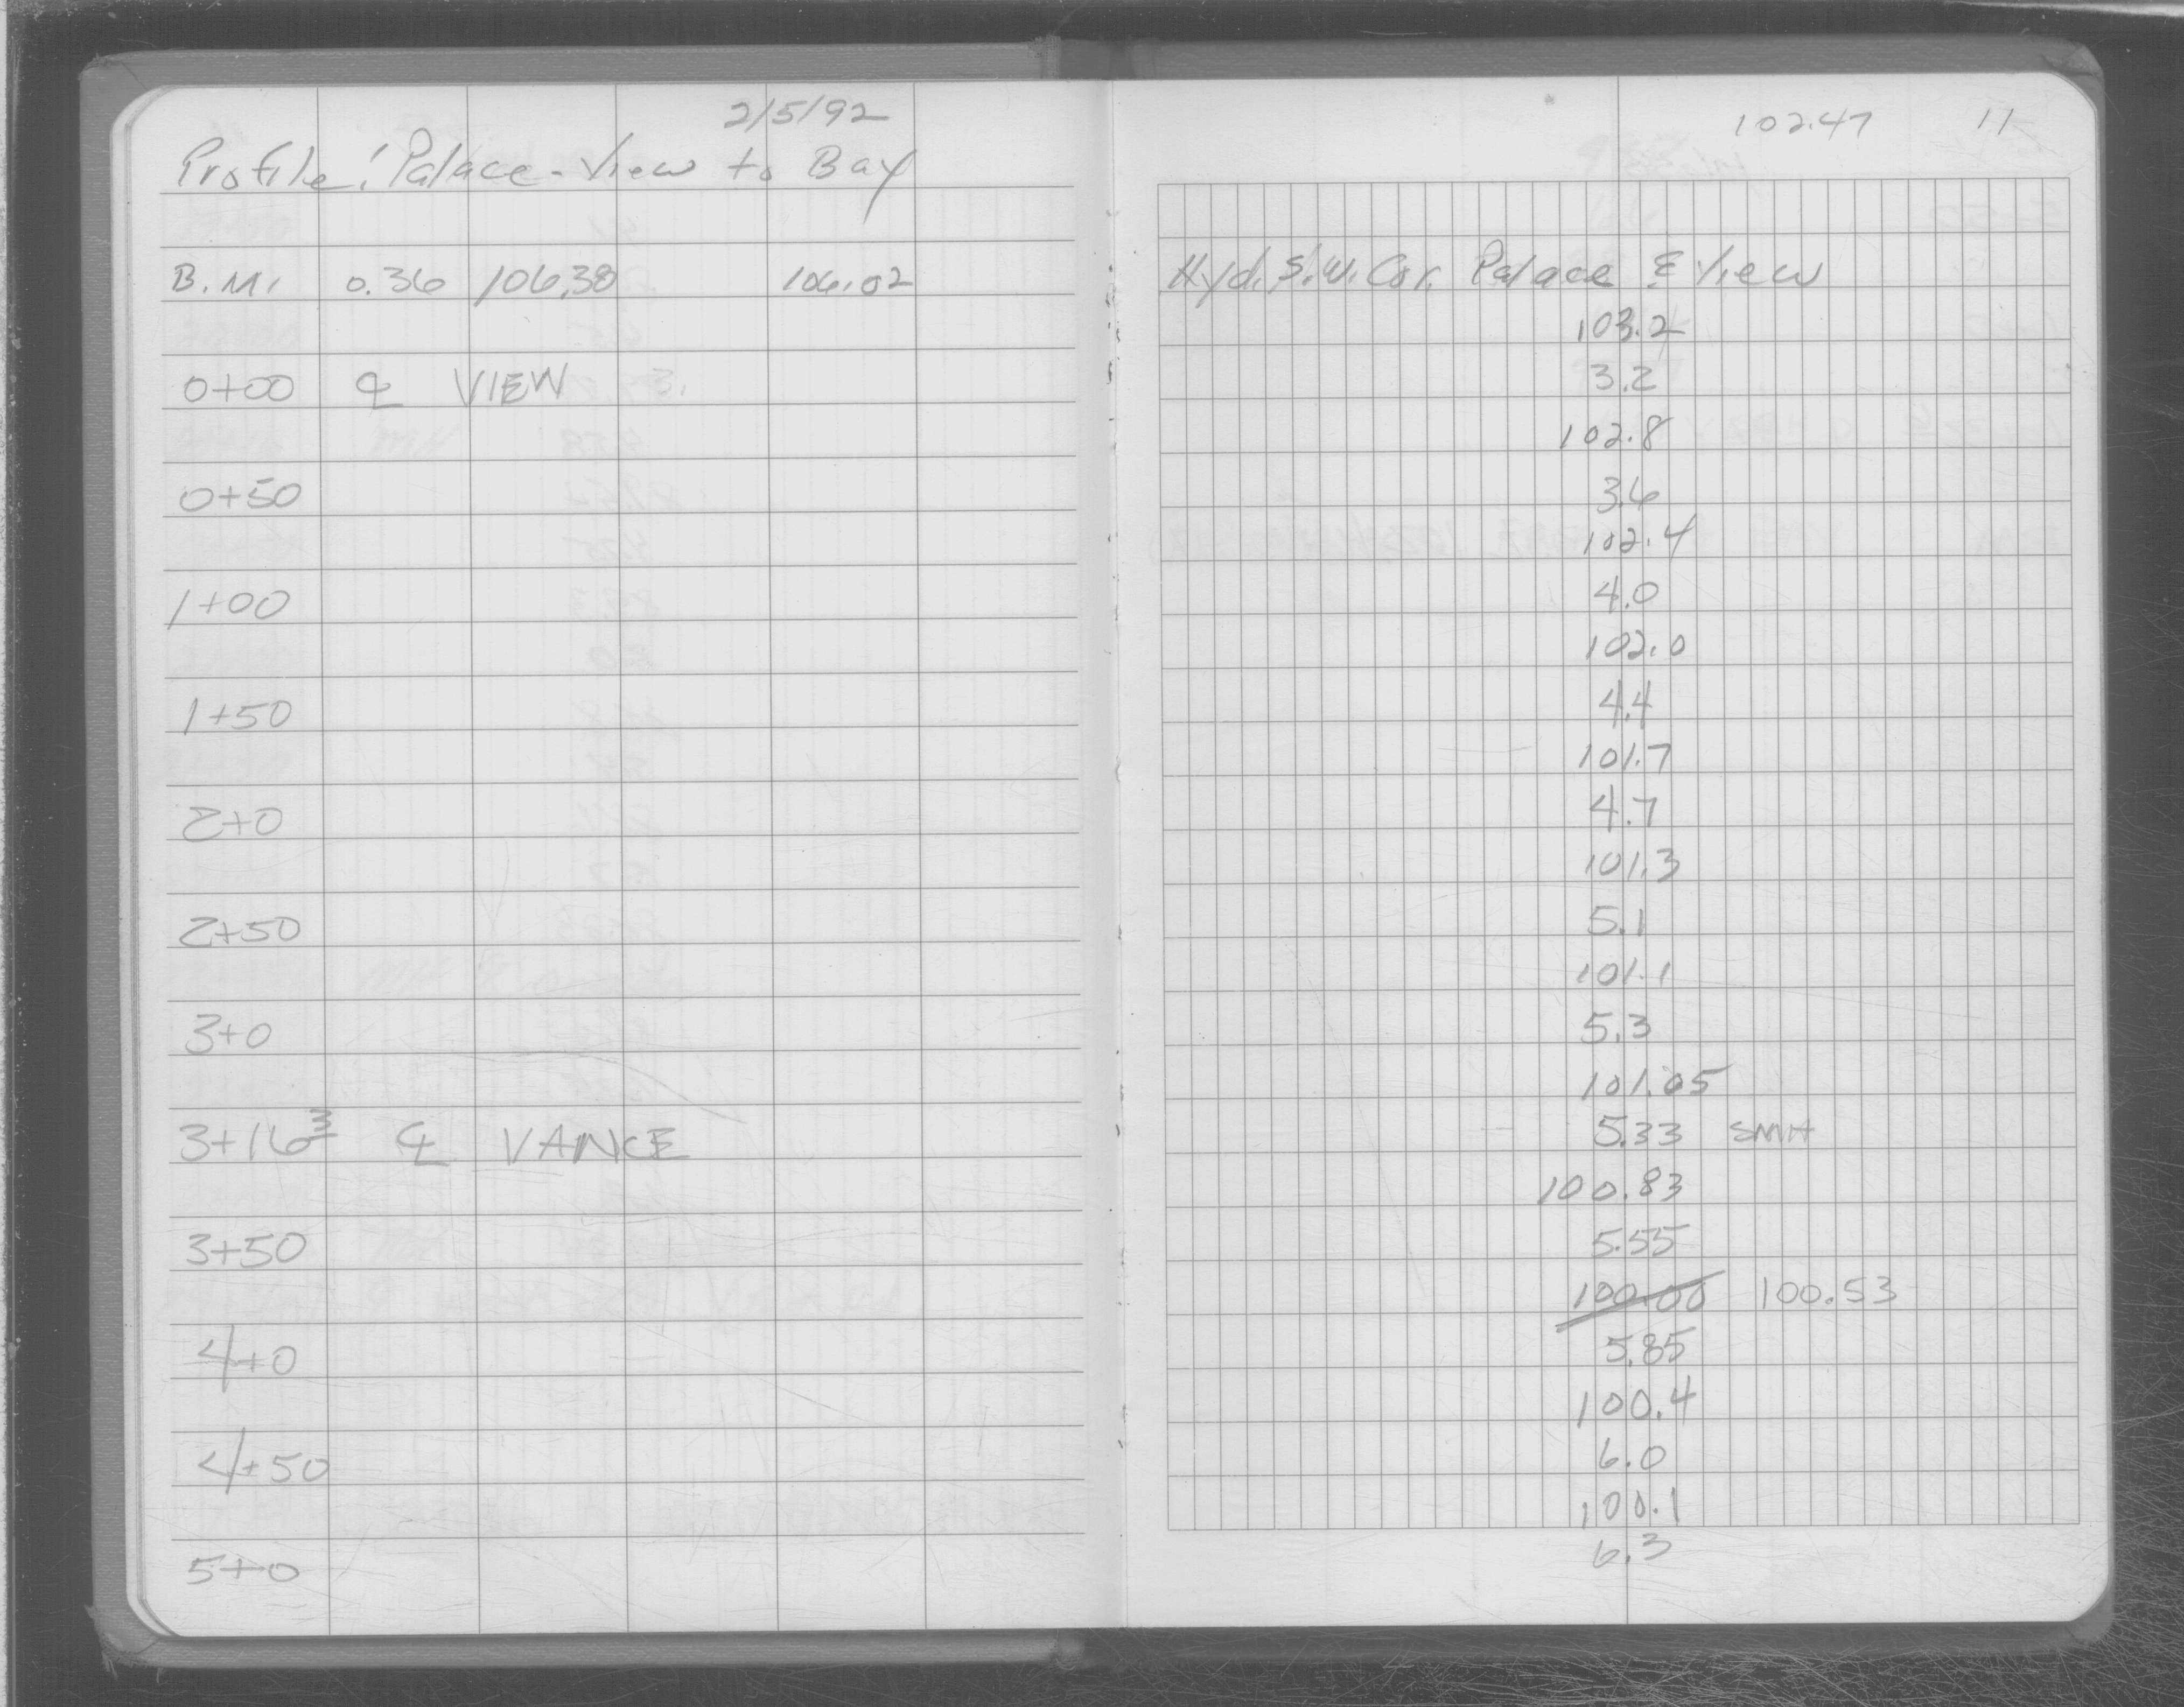 2/5/92
Profile: Palace - View to Bay
B.M. 0.36 106.38 106.02
0+00 ℄ VIEW
0+50
1+00
1+50
2+0
2+50
3+0
3+16³ ℄ VANCE
3+50
4+0
4+50
5+0
102.47 11
Hyd. S.W. Cor. Palace & View
103.2
3.2
102.8
3.6
102.4
4.0
102.0
4.4
101.7
4.7
101.3
5.1
101.1
5.3
101.05
5.33 SMH
100.83
5.55
100.00 100.53
5.85
100.4
6.0
100.1
6.3